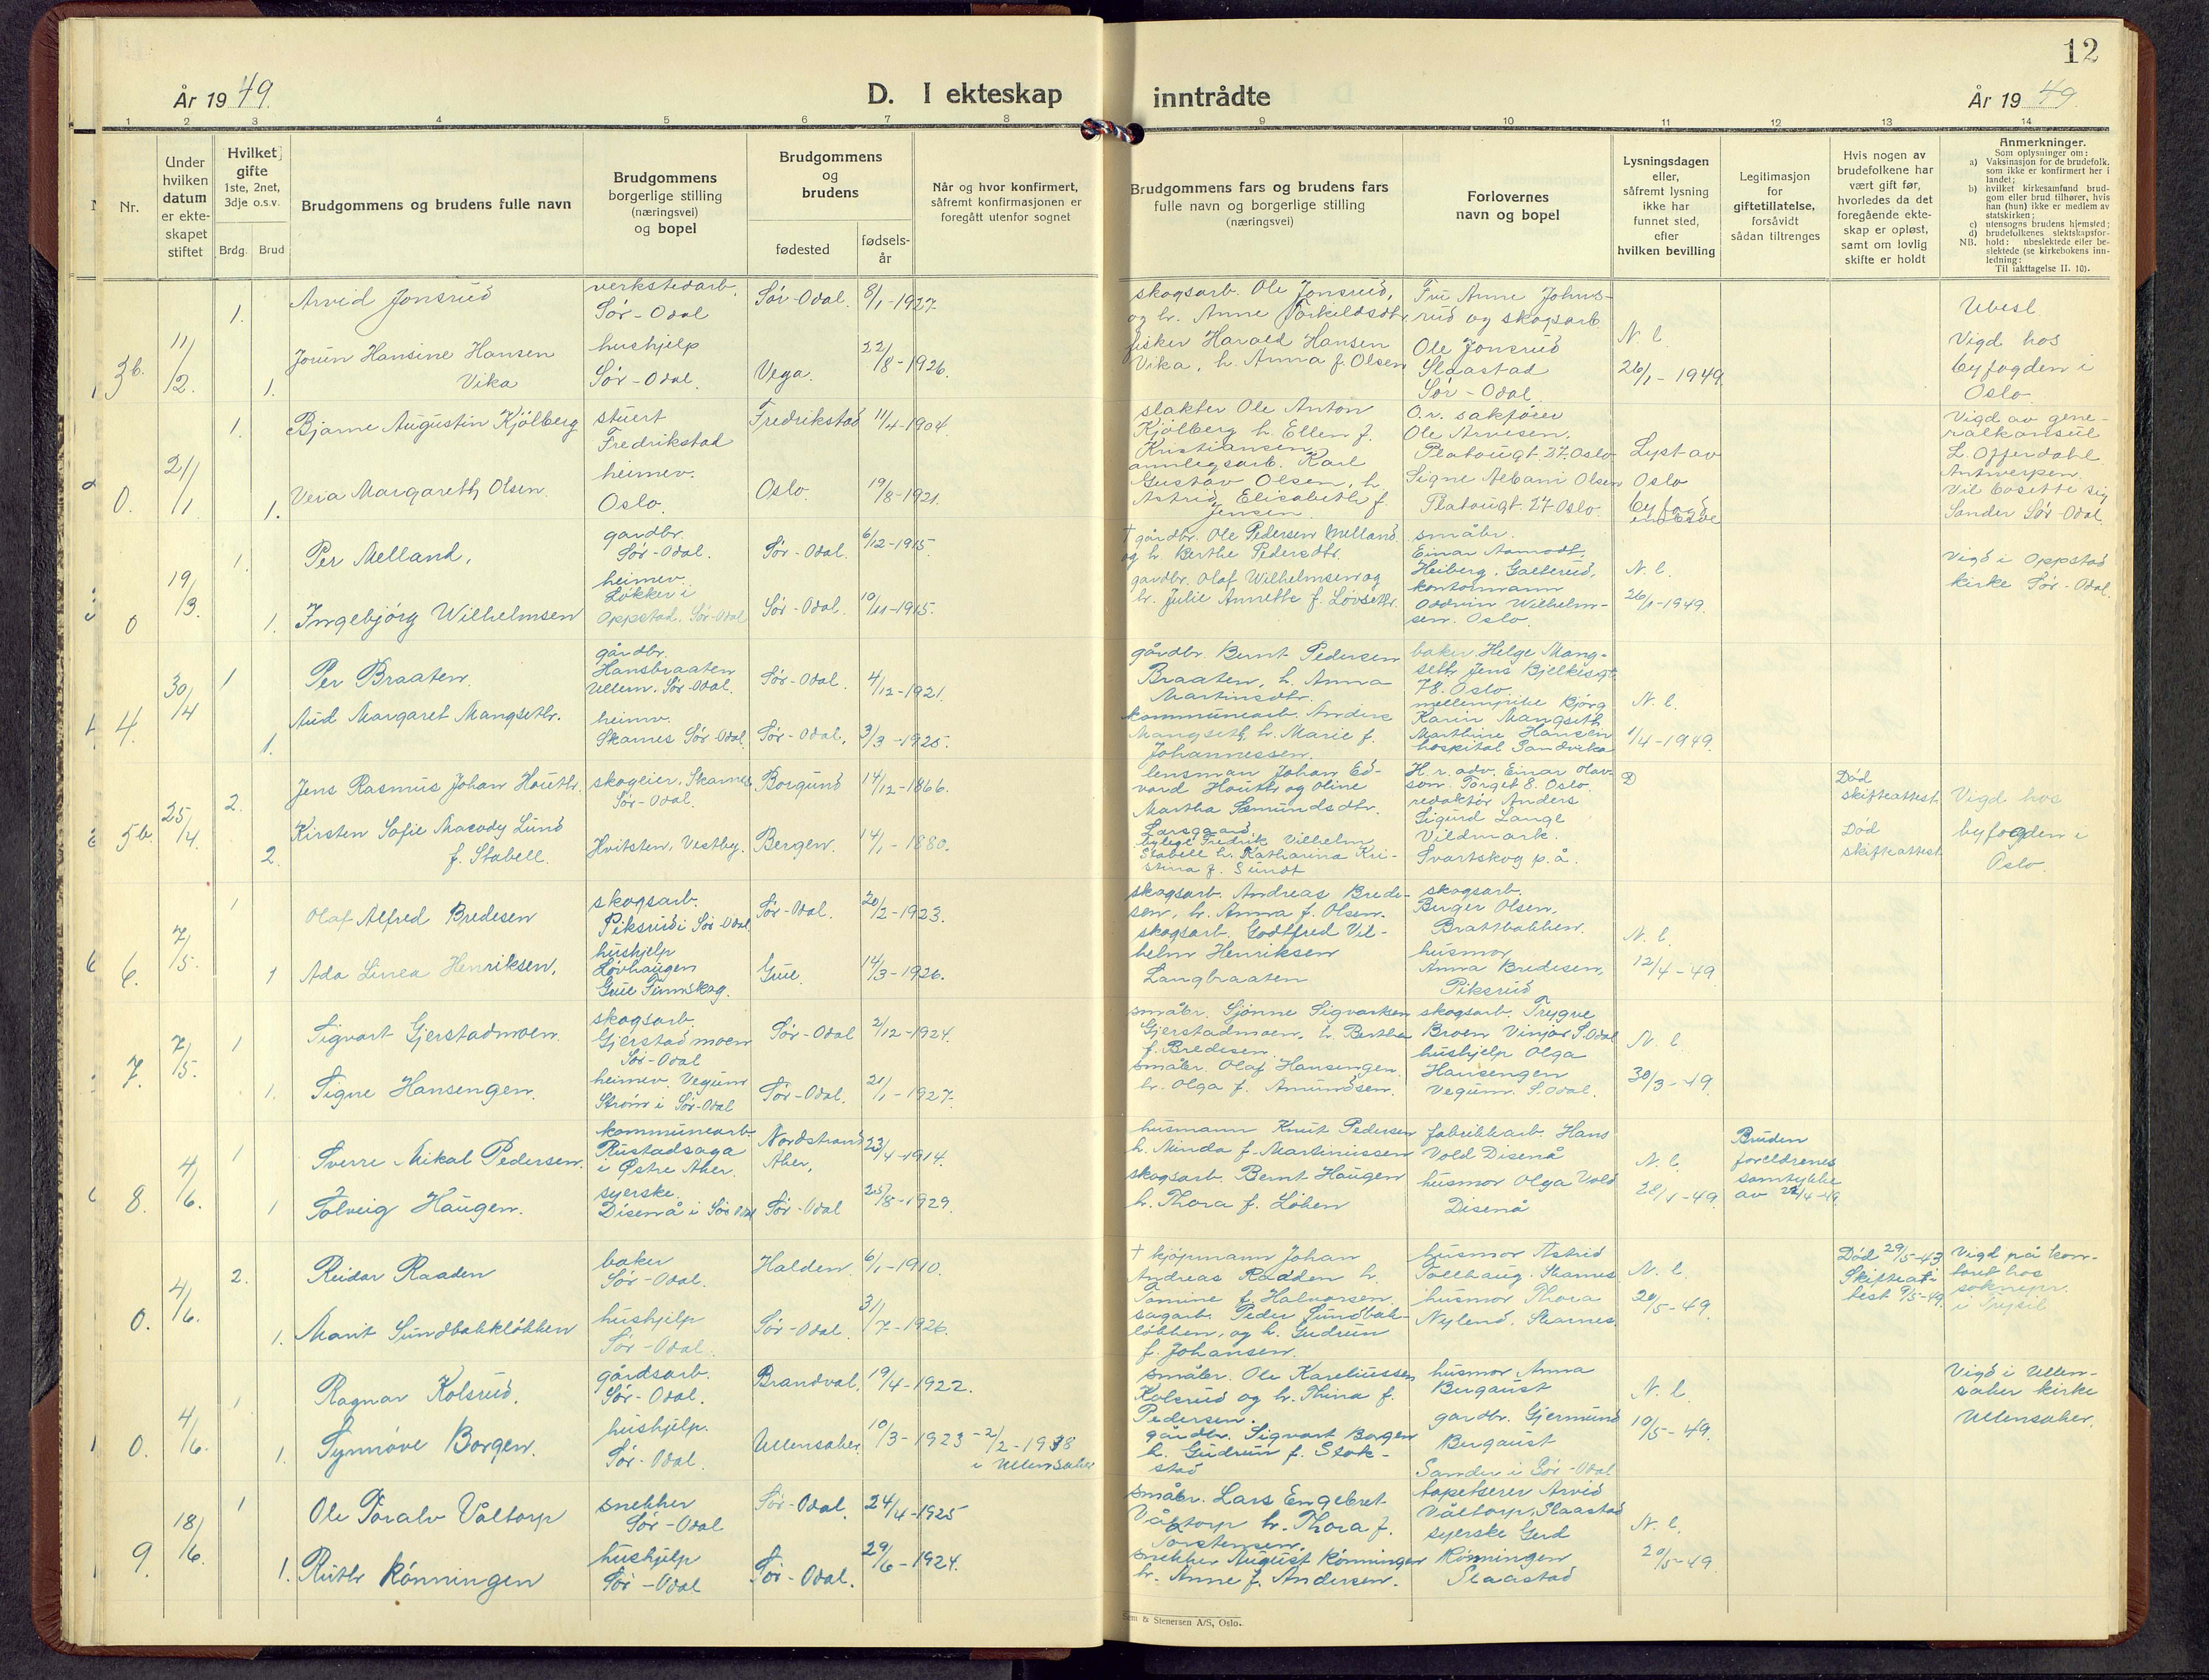 12
År 1949.
D. I ekteskap
inntrådte
År 1949.
1 2 3 4 5 6 7 8 9 10 11 12 13 14
Nr.
Under
hvilken
datum
er ekte-
skapet
stiftet
Hvilket
gifte
1ste, 2net,
3dje o.s.v.
Brdg. Brud
Brudgommens og brudens fulle navn
Brudgommens
borgerlige stilling
(næringsvei)
og bopel
Brudgommens
og
brudens
fødested
fødsels-
år
Når og hvor konfirmert,
såfremt konfirmasjonen er
foregått utenfor sognet
Brudgommens fars og brudens fars
fulle navn og borgerlige stilling
(næringsvei)
Forlovernes
navn og bopel
Lysningsdagen
eller,
såfremt lysning
ikke har
funnet sted,
efter
hvilken bevilling
Legitimasjon
for
giftetillatelse,
forsåvidt
sådan tiltrenges
Hvis nogen av
brudefolkene har
vært gift før,
hvorledes da det
foregående ekte-
skap er opløst,
samt om lovlig
skifte er holdt
Anmerkninger.
Som oplysninger om:
a) Vaksinasjon for de brudefolk.
som ikke er konfirmert her i
landet;
b) hvilket kirkesamfund brud-
gom eller brud tilhører, hvis
han (hun) ikke er medlem av
statskirken;
c) utensogns brudens hjemsted;
d) brudefolkenes slektskapsfor-
hold: ubeslektede eller be-
slektede (se kirkebokens inn-
ledning:
NB. Til iakttagelse II. 10).
3b.
11/2.
1.
Arvid Jonsrud
verkstedarb.
Sør-Odal
Sør-Odal.
8/1-1927.
skogsarb. Ole Jonsrud,
og h. Anne Torkildsdtr.
Fru Anne Johns-
rud og skogsarb.
Ole Jonsrud
Slaastad
Sør-Odal.
N. l.
26/1-1949.
Ubesl.
Vigd hos
byfogden i
Oslo.
1.
Jorun Hansine Hansen
Vika
hushjelp
Sør-Odal.
Vega.
22/8-1926.
fisker Harald Hansen
Vika, h. Anna f. Olsen
0.
21/1
1.
Bjarne Augustin Kjölberg
stuert
Fredrikstad
Fredrikstad
11/4-1904.
slakter Ole Anton
Kjølberg h. Ellen f.
Kristiansen
O.r. sakfører
Ole Arvesen,
Platougt. 27. Oslo
Signe Albani Olsen
Platougt. 27 Oslo.
Lyst av
Oslo
byfogd
embede
Vigd av gene-
ralkonsul
L. Offerdahl
Antwerpen.
Vil bosette sig
Sander Sør-Odal.
1.
Vera Margareth Olsen.
heimev.
Oslo.
Oslo.
19/8-1921.
anlegsarb. Karl
Gustav Olsen, h.
Astrid Elisabeth f.
Jensen
0
19/3.
1.
Per Melland,
gardbr.
Sør-Odal.
Sør-Odal.
6/12-1915.
† gårdbr. Ole Pedersen Melland
og h. Berthe Pedersdtr.
småbr.
Einar Aamodt,
Heiberg, Galterud,
kontormann
Oddvin Wilhelm-
sen. Oslo.
N. l.
26/1-1949.
Vigd i Oppstad
kirke Sør-Odal.
1.
Ingebjörg Wilhelmsen
heimev.
Løkker i
Oppstad. Sør-Odal
Sør-Odal.
10/11-1915.
gardbr. Olaf Wilhelmsen og
h. Julie Annette f. Løvsetr.
4.
30/4
1
Per Braaten.
gårdbr.
Hansbraaten
Ullern. Sør-Odal.
Sør-Odal.
4/12-1921.
gårdbr. Bernt Pedersen
Braaten, h. Anna
Martinsdtr.
baker Helge Mang-
seth Jens Bjelkesgt.
78. Oslo.
Bjørg
Karin Mangseth
Marthine Hansen
hospital Sandvika
N. l.
1/4-1949.
1.
Aud Margaret Mangseth.
heimv.
Skarnes Sør-Odal.
Sør-Odal,
3/3-1925.
kommunearb. Anders
Mangseth, h. Marie f.
Johannessen.
5b.
25/4.
2.
Jens Rasmus Johan Houth.
skogeier, Skarnes
Sør-Odal.
Borgund
14/12-1866.
lensman Johan Ed-
vard Houth og Oline
Martha Asmundsdtr.
H. r. adv. Einar Olav-
son. Torget 8. Oslo.
redaktör Anders
Sigurd Lange
Vildmark.
Svartskog p.å.
D
Død
skifteattest.
Død
skifteattest.
Vigd hos
byfogden i
Oslo.
2.
Kirsten Sofie Macody Lund
f. Stabell.
Hvitsten, Vestby.
Bergen.
14/1-1880.
Fredrik Vilhelm
Stabell h. Katharina Kri-
stina f. Sundt
6.
7/5.
1
Olaf Alfred Bredesen
skogsarb.
Piksrud i Sør-Odal
Sør-Odal.
20/2-1923.
skogsarb. Andreas Brede-
sen, h. Anna f. Olsen.
skogsarb.
Birger Olsen,
Brattbakken.
husmor
Anna Bredesen,
Piksrud
N. l.
12/4-49
1
Ada Linea Henriksen.
hushjelp
Løvhaugen
Grue Finnskog.
Grue.
14/3-1926.
skogsarb. Godtfred Vil-
helm Henriksen
Langbraaten
7.
7/5.
1
Sigvart Gjerstadmoen.
skogsarb.
Gjerstadmoen
Sør-Odal
Sør-Odal
2/12-1924.
småbr. Sjønne Sigvartsen
Gjerstadmoen, h. Berthe
f. Bredesen.
skogsarb. Trygve
Broen Vinjar S.Odal
hushjelp Olga
Hansengen
Vegum. S.Odal.
N. l.
30/3-49
1.
Signe Hansengen.
heimev. Vegum
Strøm i Sør-Odal
Sør-Odal.
21/1-1927.
småbr. Olaf Hansengen.
h. Olga f. Amundsen.
8.
4/6.
1
Sverre Mikal Pedersen.
kommunearb.
Rustadsaga
i Østre Aker.
Nordstrand
Aker,
23/4-1914.
husmann Knut Pedersen
h. Minda f. Martinussen
fabrikkarb. Hans
Vold Disenå
husmor Olga Vold
Disenå
N. l.
28/4-49.
Bruden
foreldrenes
samtykke
av 22/4-49.
1
Solveig Haugen.
syerske.
Disenå i Sør-Odal
Sør-Odal
25/8-1929.
skogsarb. Bernt Haugen
h. Thora f. Løken
0.
4/6.
2.
Reidar Raaden
baker
Sør-Odal.
Halden.
6/1-1910.
† kjøpmann Johan
Andreas Raaden h.
Tomine f. Halvorsen.
husmor Astrid
Tollhaug. Skarnes
husmor Thora
Nylend, Skarnes.
N. l.
20/5-49.
Død 29/5-43
Skifteat-
test 9/5-49.
Vigd på kon-
toret hos
soknepr.
i Trysil
1.
Marit Sundbakkløkken
hushjelp
Sør-Odal.
Sør-Odal.
31/7-1926.
sagarb. Peder Sundbak-
løkken, og h. Gudrun
f. Johansen.
0.
4/6.
1
Ragnar Kolsrud.
gårdsarb.
Sør-Odal.
Brandval.
19/4-1922.
småbr. Ole Kareliussen
Kolsrud og h. Thina f.
Pedersen.
husmor Anna
Bergaust
gardbr. Gjermund
Bergaust
Sander i Sør-Odal
N. l.
10/5-49.
Vigd i Ullen-
saker kirke
Ullensaker.
1.
Synnöve Borgen.
hushjelp.
Sør-Odal.
Ullensaker.
10/3-1923
-2/2-1938
i Ullensaker
gårdbr. Sigvart Borgen
h. Gudrun f. Stok-
stad
9.
18/6.
1
Ole Toralv Våltorp
snekker
Sør-Odal
Sør-Odal.
24/4-1925
småbr. Lars Engebret
Våltorp h. Thora f.
Torstensen.
tapetserer Arvid
Våltorp, Slaastad
syerske Gerd
Rönningen
Slaastad
N. l.
20/5-49.
1.
Ruth Rönningen
hushjelp
Sør-Odal
Sør-Odal.
29/6-1924.
snekker August Rönningen
h. Anne f. Andersen.
Sem & Stenersen A/S, Oslo.